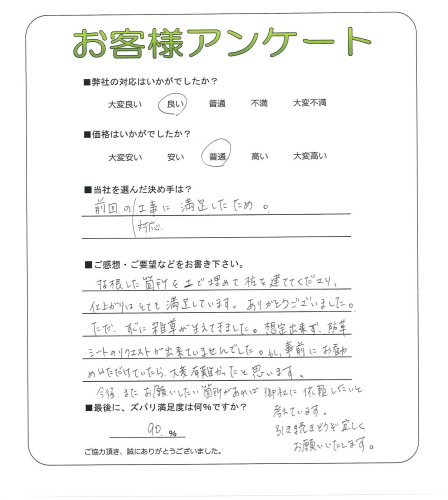 お客様アンケート
■弊社の対応はいかがでしたか？
大変良い 良い 普通 不満 大変不満
■価格はいかがでしたか？
大変安い 安い 普通 高い 大変高い
■当社を選んだ決め手は？
前回の工事に満足したため。
対応
■ご感想・ご要望などをお書き下さい。
した箇所を土で埋めて杭を建ててくださり、
仕上がりはとても満足しています。ありがとうございました。
ただ、すぐに雑草が生えてきました。想定出来ず、防草
シートのリクエストが出来ていませんでした。もし、事前にお勧
めいただけていたら、大変有難かったと思います。
今後、またお願いしたい箇所があれば御社に依頼したいと
考えています。
引き続きどうぞ宜しく
お願いいたします。
■最後に、ズバリ満足度は何%ですか？
90. %
ご協力頂き、誠にありがとうございました。